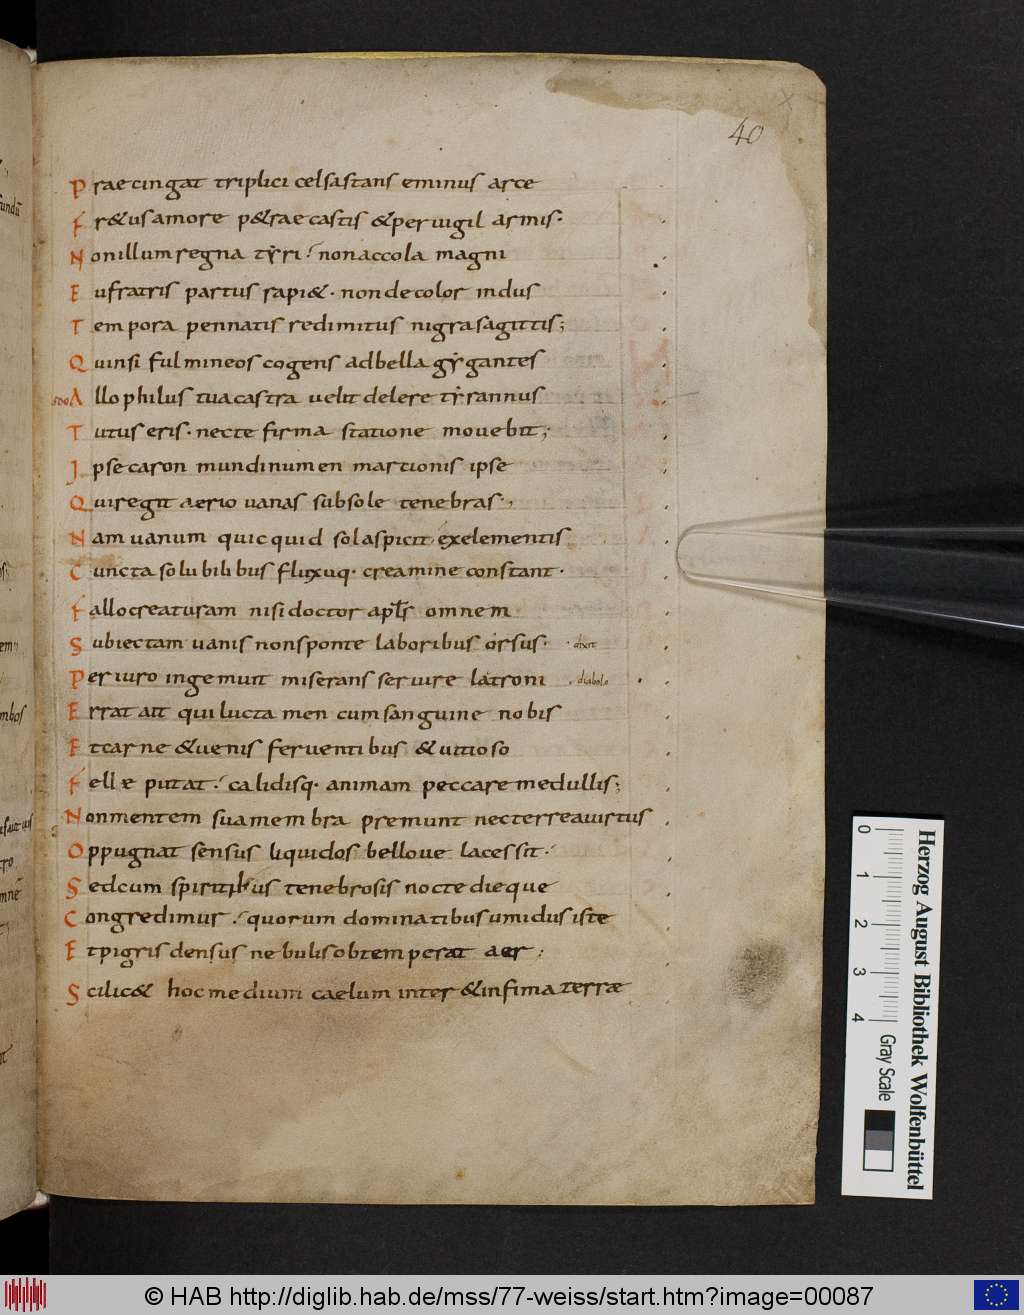 40
Praecingat triplici celsastans eminus arce
Fr&usamore p&rae castis &peruigil armis·
Nonillum regna tyri nonaccola magni
Eufratris partus rapi&· nondecolor indus
Tempora pennatis redimitus nigrasagittis;
Quinsi fulmineos cogens adbella gygantes
Allophilus tuacastra uelit delere tyrannus
Tutus eris· necte firma statione mouebit;
Ipse caron mundinumen martionis ipse
Quiregit aerio uanas subsole tenebras·
Nam uanum quicquid solaspicit exelementis
Cuncta solubilibus fluxuq· creamine constant·
Fallo creaturam nisi doctor apls omnem
Subiectam uanis nonsponte laboribus orsus· dixit
Periuro ingemuit miserans seruire latroni diabolo
Errat ait qui lucta men cumsanguine nobis
Etcarne &uenis feruentibus &uitioso
Felle putat· calidisq· animam peccare medullis;
Nonmentem suamembra premunt necterreauirtus
Oppugnat sensus liquidos belloue lacessit·
Sedcum spiritibus tenebrosis nocte dieque
Congredimur· quorum dominatibus umidus iste
Etpigris densus nebulis obtemperat aer;
Scilic& hoc medium caelum inter &infima terrae
Herzog August Bibliothek Wolfenbüttel
0 1 2 3 4
Gray Scale
© HAB http://diglib.hab.de/mss/77-weiss/start.htm?image=00087